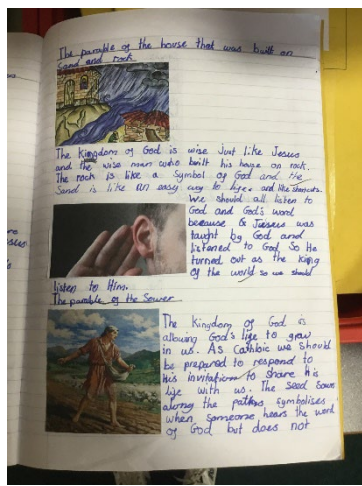 The parable of the house that was built on
Sand and rock
The kingdom of God is wise Just like Jesus
and the wise man who built his house on rock.
The rock is like a symbol of God and the
Sand is like an easy way to life and like shortcuts.
We should all listen to
God and God's word
because Jesus was
taught by God and
listened to God So He
turned out as the king
of the world so we should
listen to Him.
The parable of the Sower
The Kingdom of God is
allowing God's life to grow
in us. As Catholic we should
be prepared to respond to
His invitation to share His
life with us. The seed Sown
along the path symbolises
when someone hears the word
of God but does not